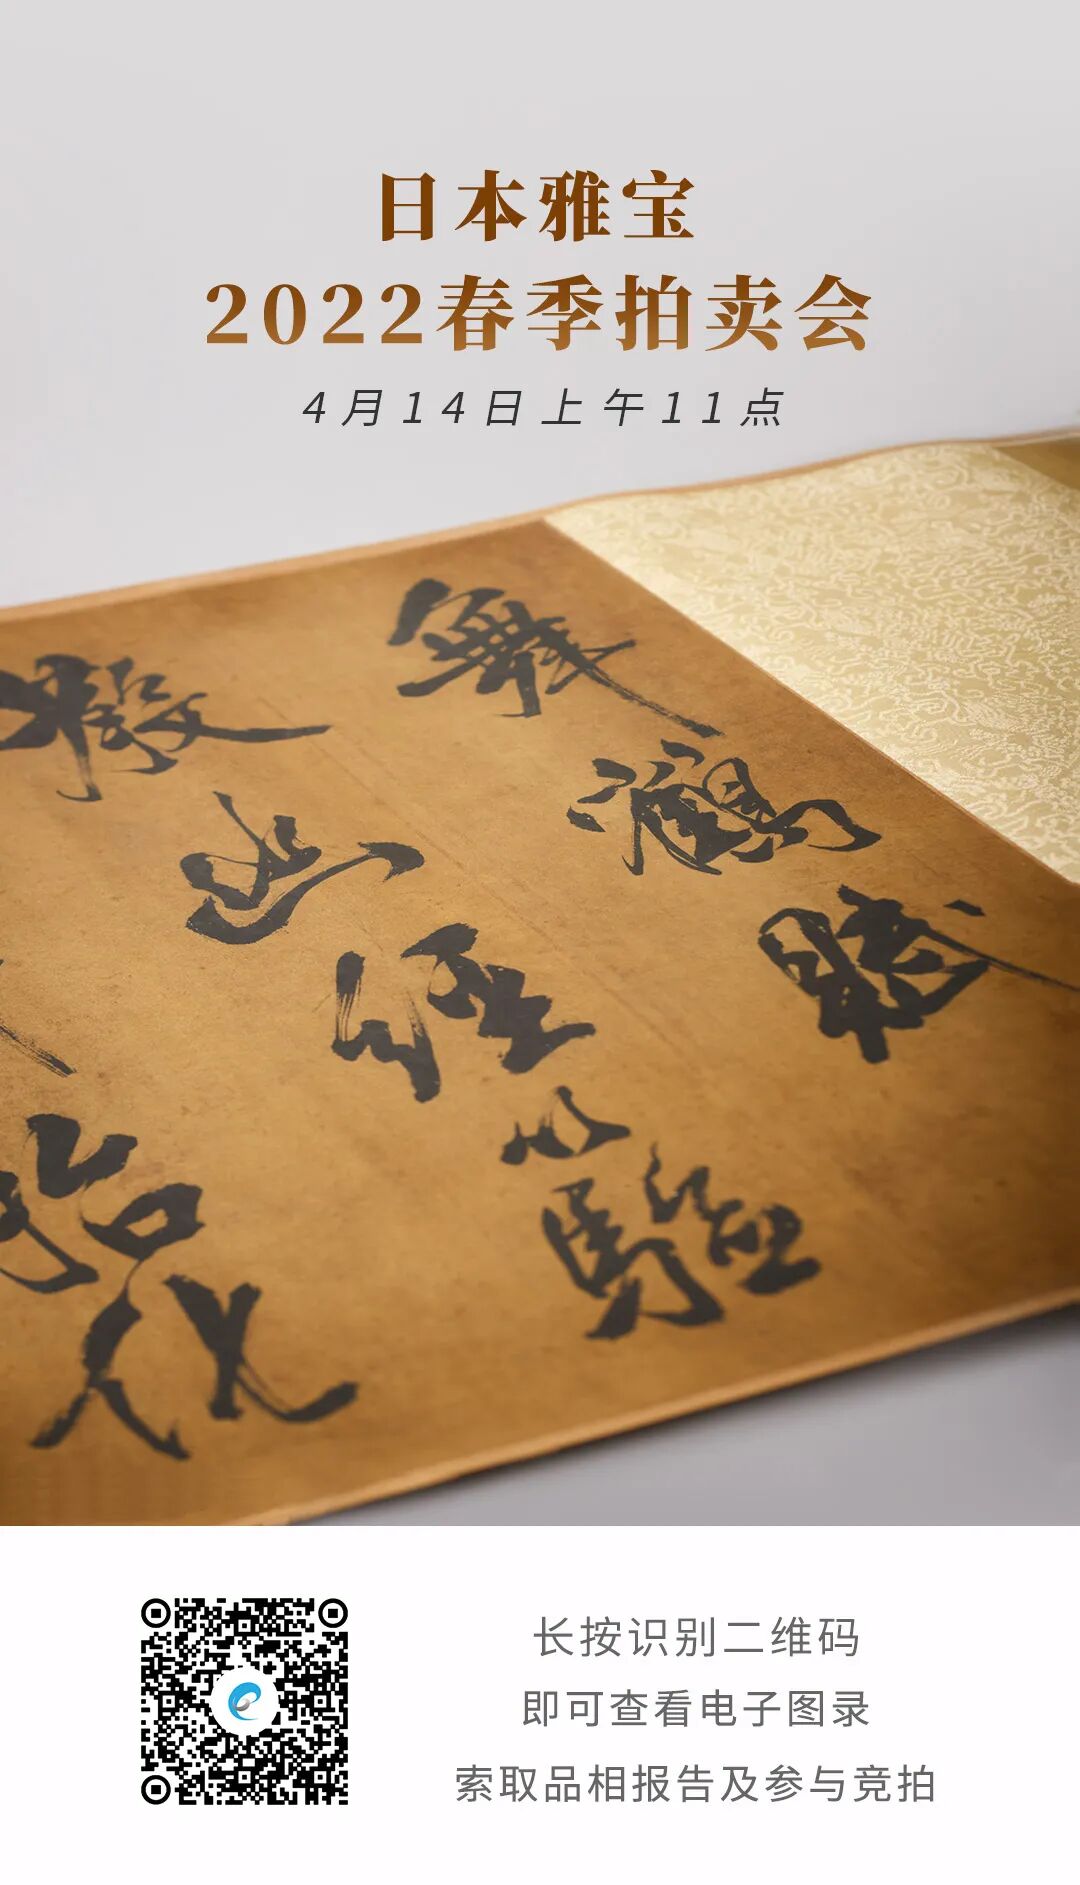 日本雅宝
2022春季拍卖会
4月14日上午11点
舞鶴賦
散幽經以驗
胎化
长按识别二维码
即可查看电子图录
索取品相报告及参与竞拍